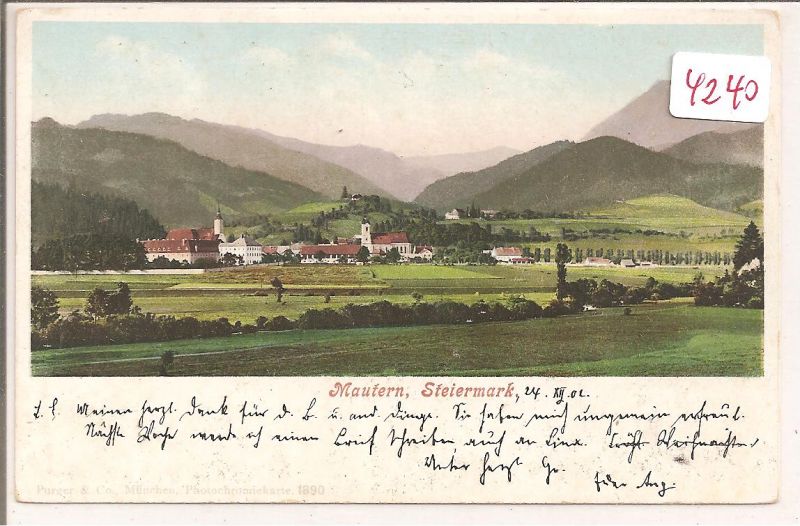 4240
Mautern, Steiermark, 24. XII. 02.
L. E. Meinen herzl. Dank für d. B. u. and. Dinge. Sie haben mich ungemein erfreut.
Nächste Woche werde ich einen Brief schreiben auch an Lina. Frohe Weihnachten
Unter herzl. Gr.
Purger & Co., München, Photochromiekarte, 1890